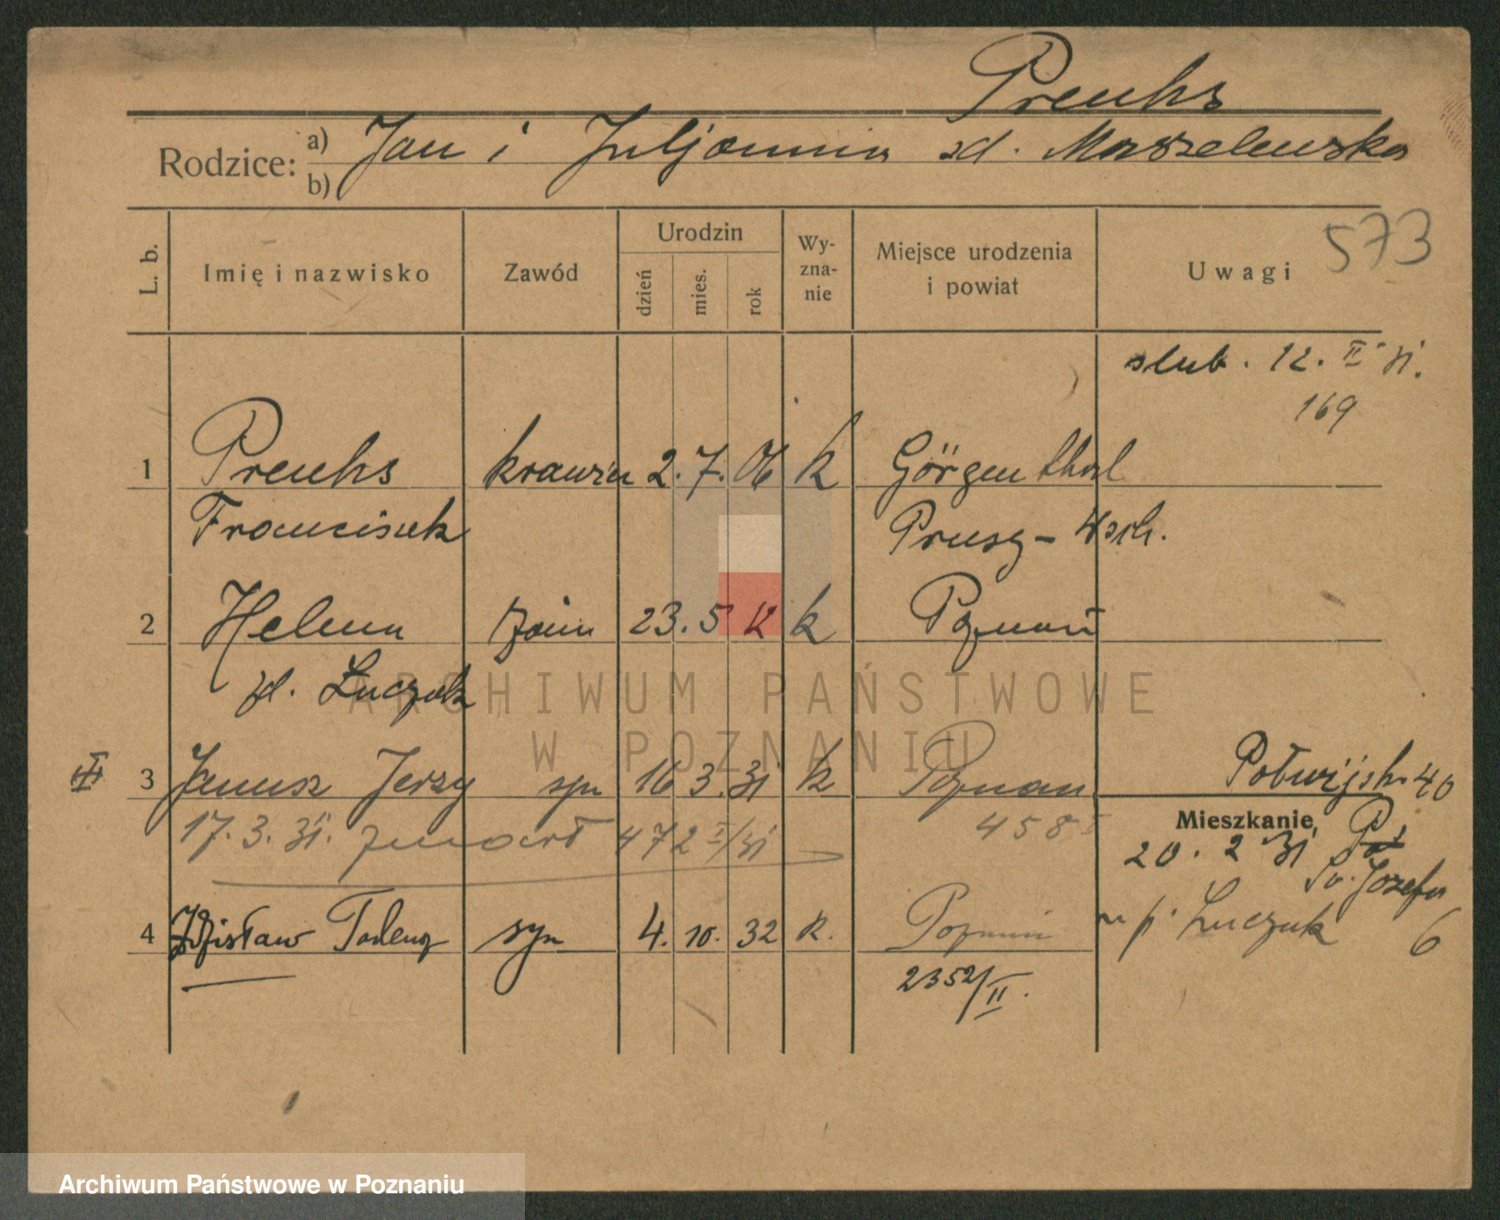 Preuhs
Rodzice: a) Jan i Juljanna zd. Maszelewska
b)
573
L. b. Imię i nazwisko Zawód Urodzin dzień mies. rok Wyzna-nie Miejsce urodzenia i powiat Uwagi
slub. 12. II 31.
169
1 Preuhs krawiec 2. 7. 06 k Görgenthal
Franciszek Prusy-Wsch.
2 Helena żona 23. 5. k Poznań
zd. Łuczak
ARCHIWUM PAŃSTWOWE
W POZNANIU
3 Janusz Jerzy syn 16 3. 31 k Poznań 40
17. 3. 31. zmarł 472 I/31 458
Mieszkanie
20. 2 31
św. Józefa
4 Zdzisław Tadeusz syn 4. 10. 32 k. Poznań
u p. Łuczak 6
2352/II.
Archiwum Państwowe w Poznaniu